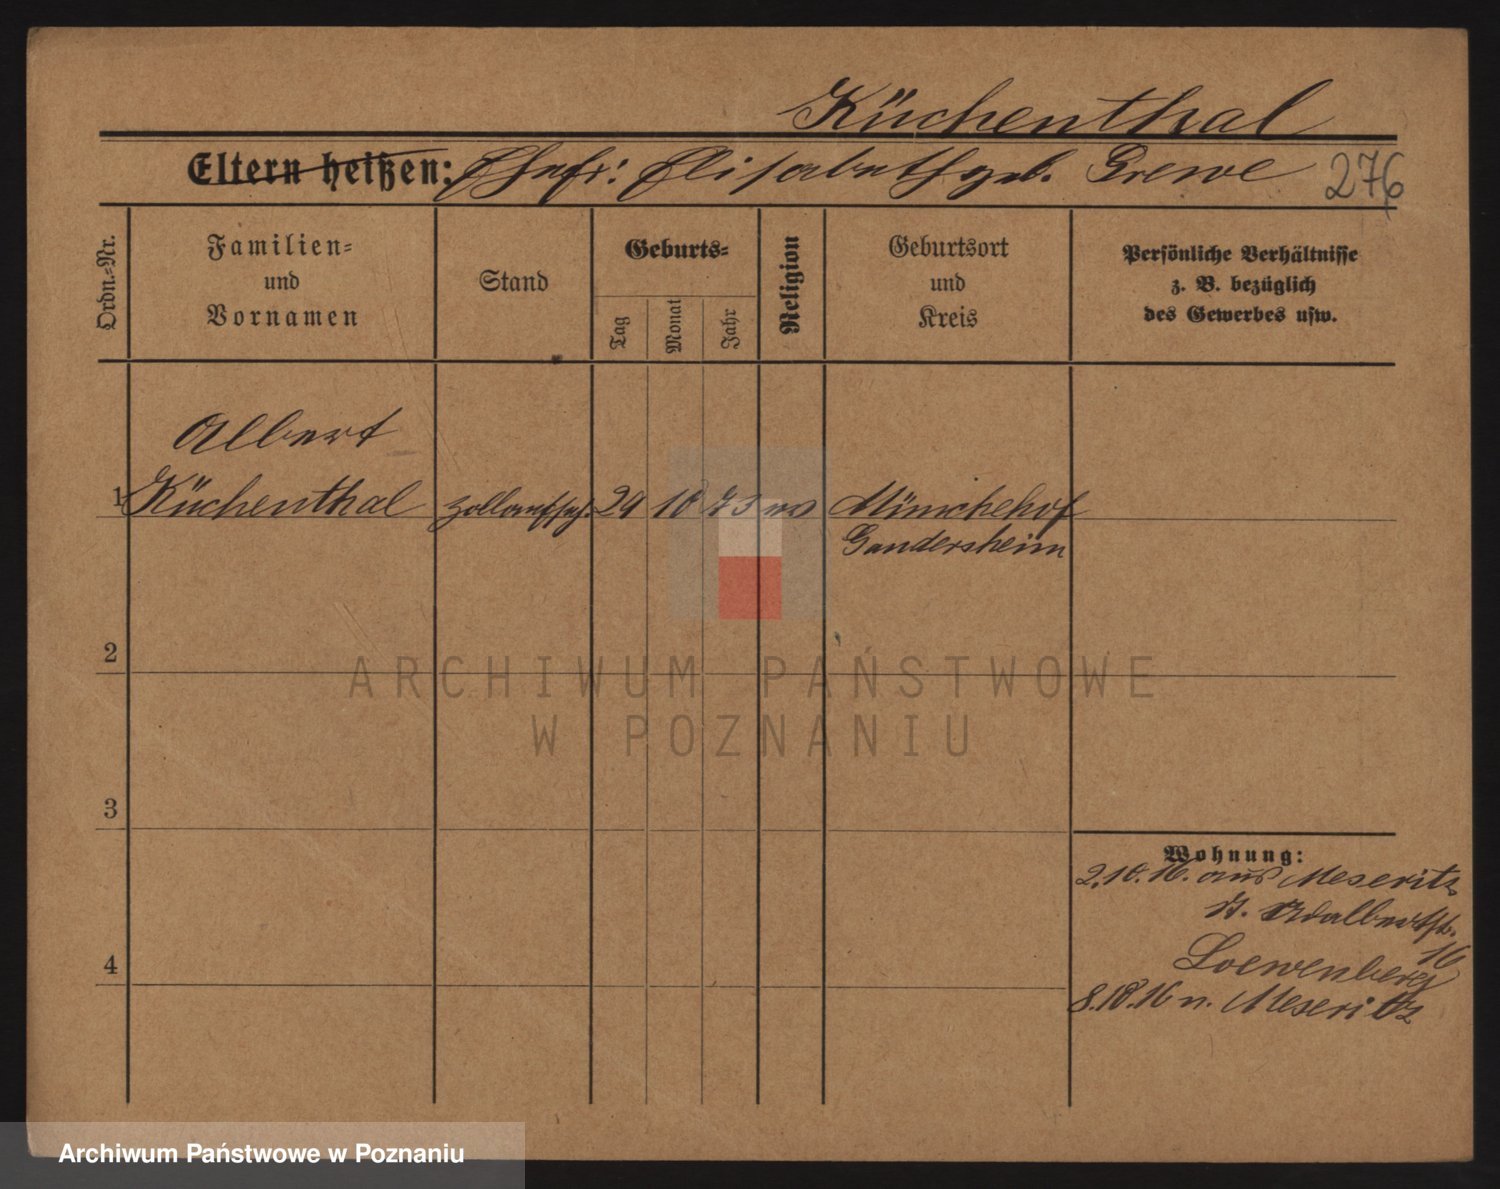 Küchenthal
Eltern heißen: Ehefr: Elisabeth geb. Grewe 276
Ordn.-Nr.
Familien-
und
Vornamen
Stand
Geburts-
Tag
Monat
Jahr
Religion
Geburtsort
und
Kreis
Persönliche Verhältnisse
z. B. bezüglich
des Gewerbes usw.
Albert
1 Küchenthal Zollaufseh. 29 10 73 ev Münchehof
Gandersheim
2
3
4
Wohnung:
2.10.16. aus Meseritz
St. Adalbertstr.
16
Loewenberg
8.10.16 n. Meseritz
ARCHIWUM PAŃSTWOWE
W POZNANIU
Archiwum Państwowe w Poznaniu